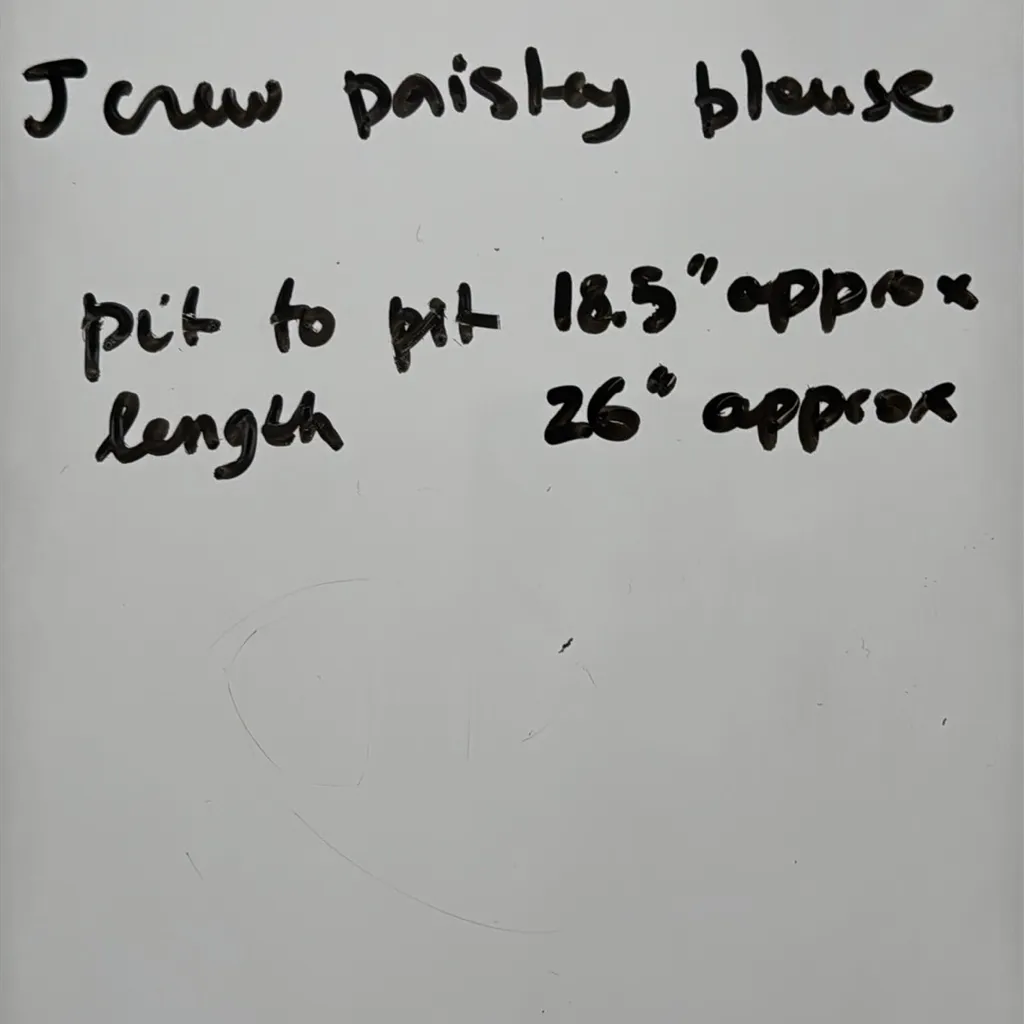 J crew paisley blouse
pit to pit 18.5" approx
length 26" approx